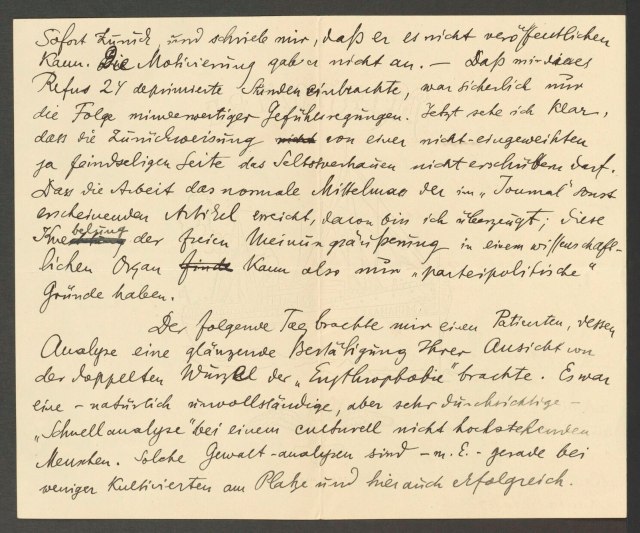 Sofort zurück und schrieb mir, daß er es nicht veröffentlichen
kann. Die Motivierung gab er nicht an. — Daß mir dieses
Refus 24 deprimierte Stunden einbrachte, war sicherlich nur
die Folge minderwertiger Gefühlsregungen. Jetzt sehe ich klar,
dass die Zurückweisung nicht von einer nicht-eingeweihten
ja feindseligen Seite das Selbstvertrauen nicht erschüttern darf.
Dass die Arbeit das normale Mittelmaß der im „Journal" sonst
erscheinenden Artikel erreicht, davon bin ich überzeugt; diese
Knebelung der freien Meinungsäußerung in einem wissenschaft-
lichen Organ finde kann also nur „parteipolitische"
Gründe haben.
Der folgende Tag brachte mir einen Patienten, dessen
Analyse eine glänzende Bestätigung Ihrer Ansicht von
der doppelten Wurzel der „Erythrophobie" brachte. Es war
eine – natürlich unvollständige, aber sehr durchsichtige –
„Schnellanalyse" bei einem culturell nicht hochstehenden
Menschen. Solche Gewalt-analysen sind – m. E. – gerade bei
weniger Kultivierten am Platze und hier auch erfolgreich.